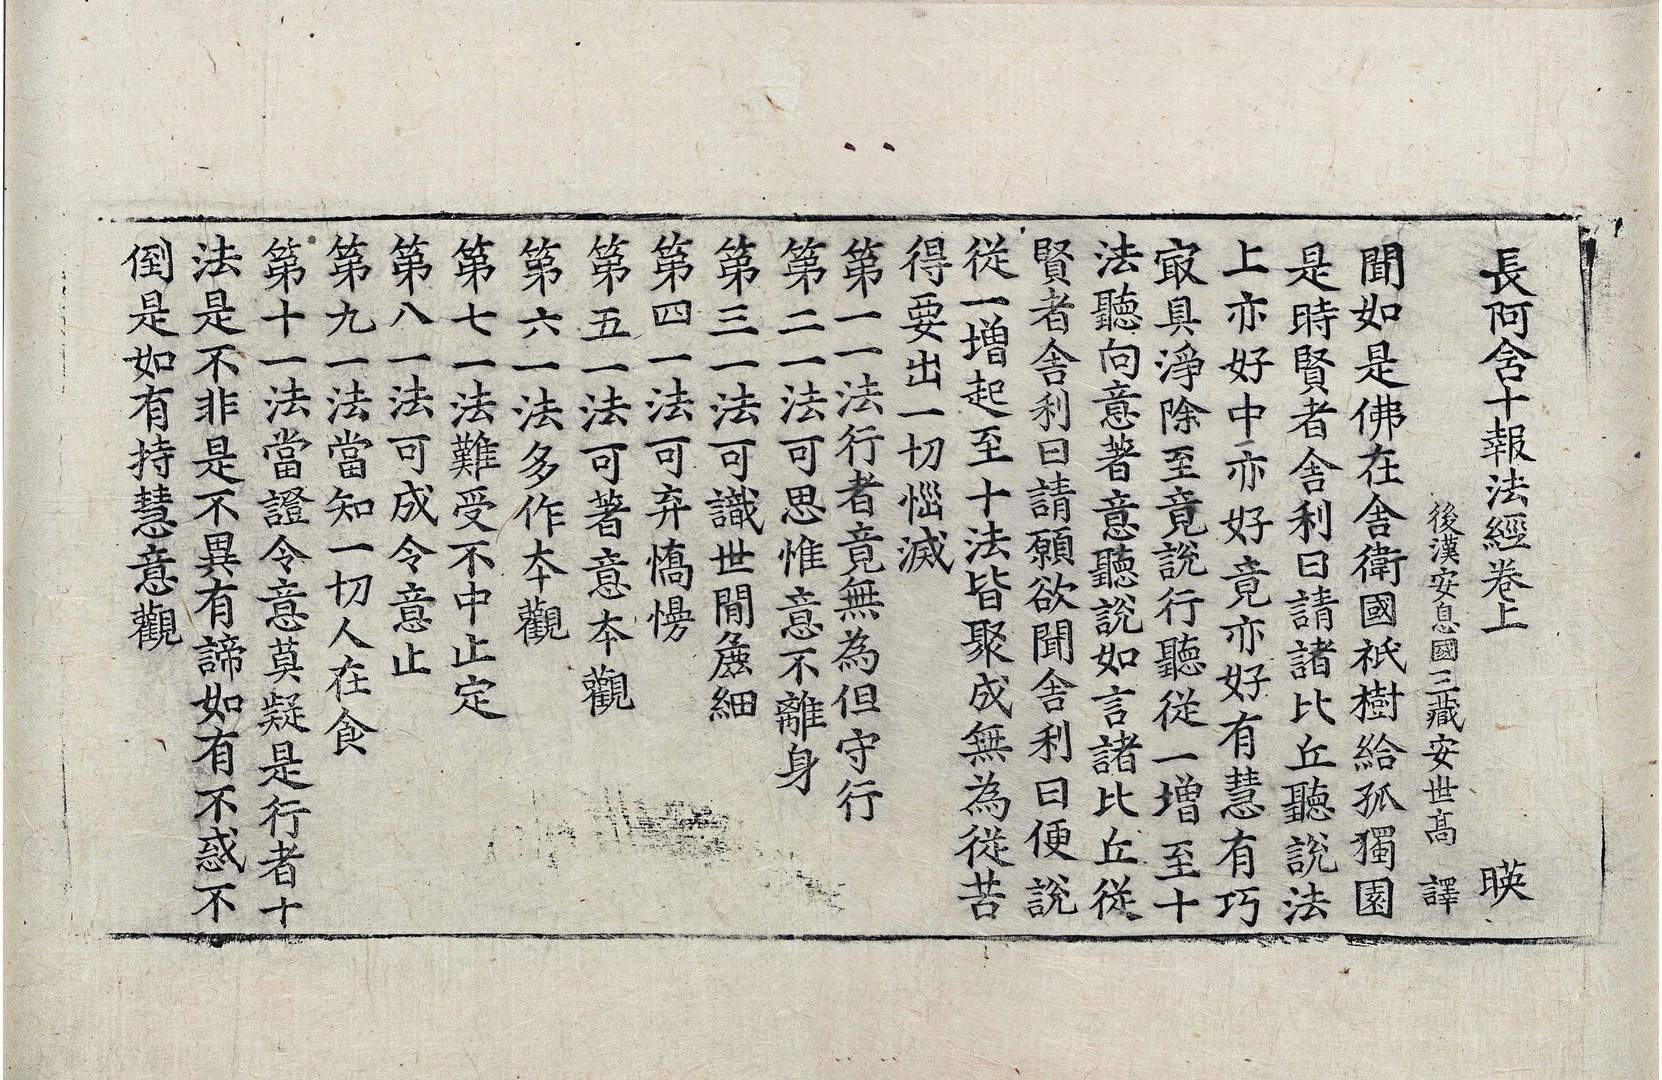 長阿含十報法經卷上 暎
後漢安息國三藏安世高 譯
聞如是佛在舍衛國祇樹給孤獨園
是時賢者舍利曰請諸比丘聽說法
上亦好中亦好竟亦好有慧有巧
㝡具淨除至竟說行聽從一增至十
法聽向意著意聽說如言諸比丘從
賢者舍利曰請願欲聞舍利曰便說
從一增起至十法皆聚成無為從苦
得要出一切惱滅
第一一法行者竟無為但守行
第二一法可思惟意不離身
第三一法可識世閒麁細
第四一法可弃憍慢
第五一法可著意本觀
第六一法多作本觀
第七一法難受不中止定
第八一法可成令意止
第九一法當知一切人在食
第十一法當證令意莫疑是行者十
法是不非是不異有諦如有不惑不
倒是如有持慧意觀